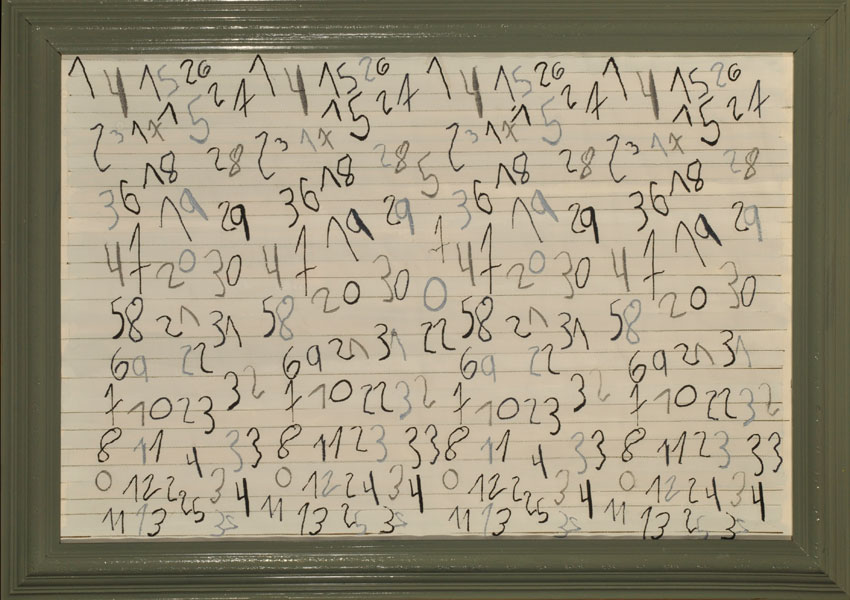 1 4 15 26 1 4 15 26 1 4 15 26 1 4 15 26
1 5 2 7 1 5 2 7 1 5 2 7 1 5 2 7
2 3 1 7 2 3 1 7 2 3 1 7 2 3 1 7
18 28 18 28 5 18 28 18 28
36 19 29 36 19 29 36 19 29 36 19 29
47 20 30 47 20 30 7 47 20 30 47 20 30
0
58 21 31 58 21 31 22 58 21 31 58 21 31
69 22 69 69 22 69
7 10 23 32 7 10 22 32 7 10 23 32 7 10 22 32
8 11 4 33 8 11 23 33 8 11 4 33 8 11 23 33
0 12 22 3 4 0 12 24 3 4 0 12 22 3 4 0 12 24 3 4
11 13 25 35 11 13 25 35 11 13 25 35 11 13 25 35